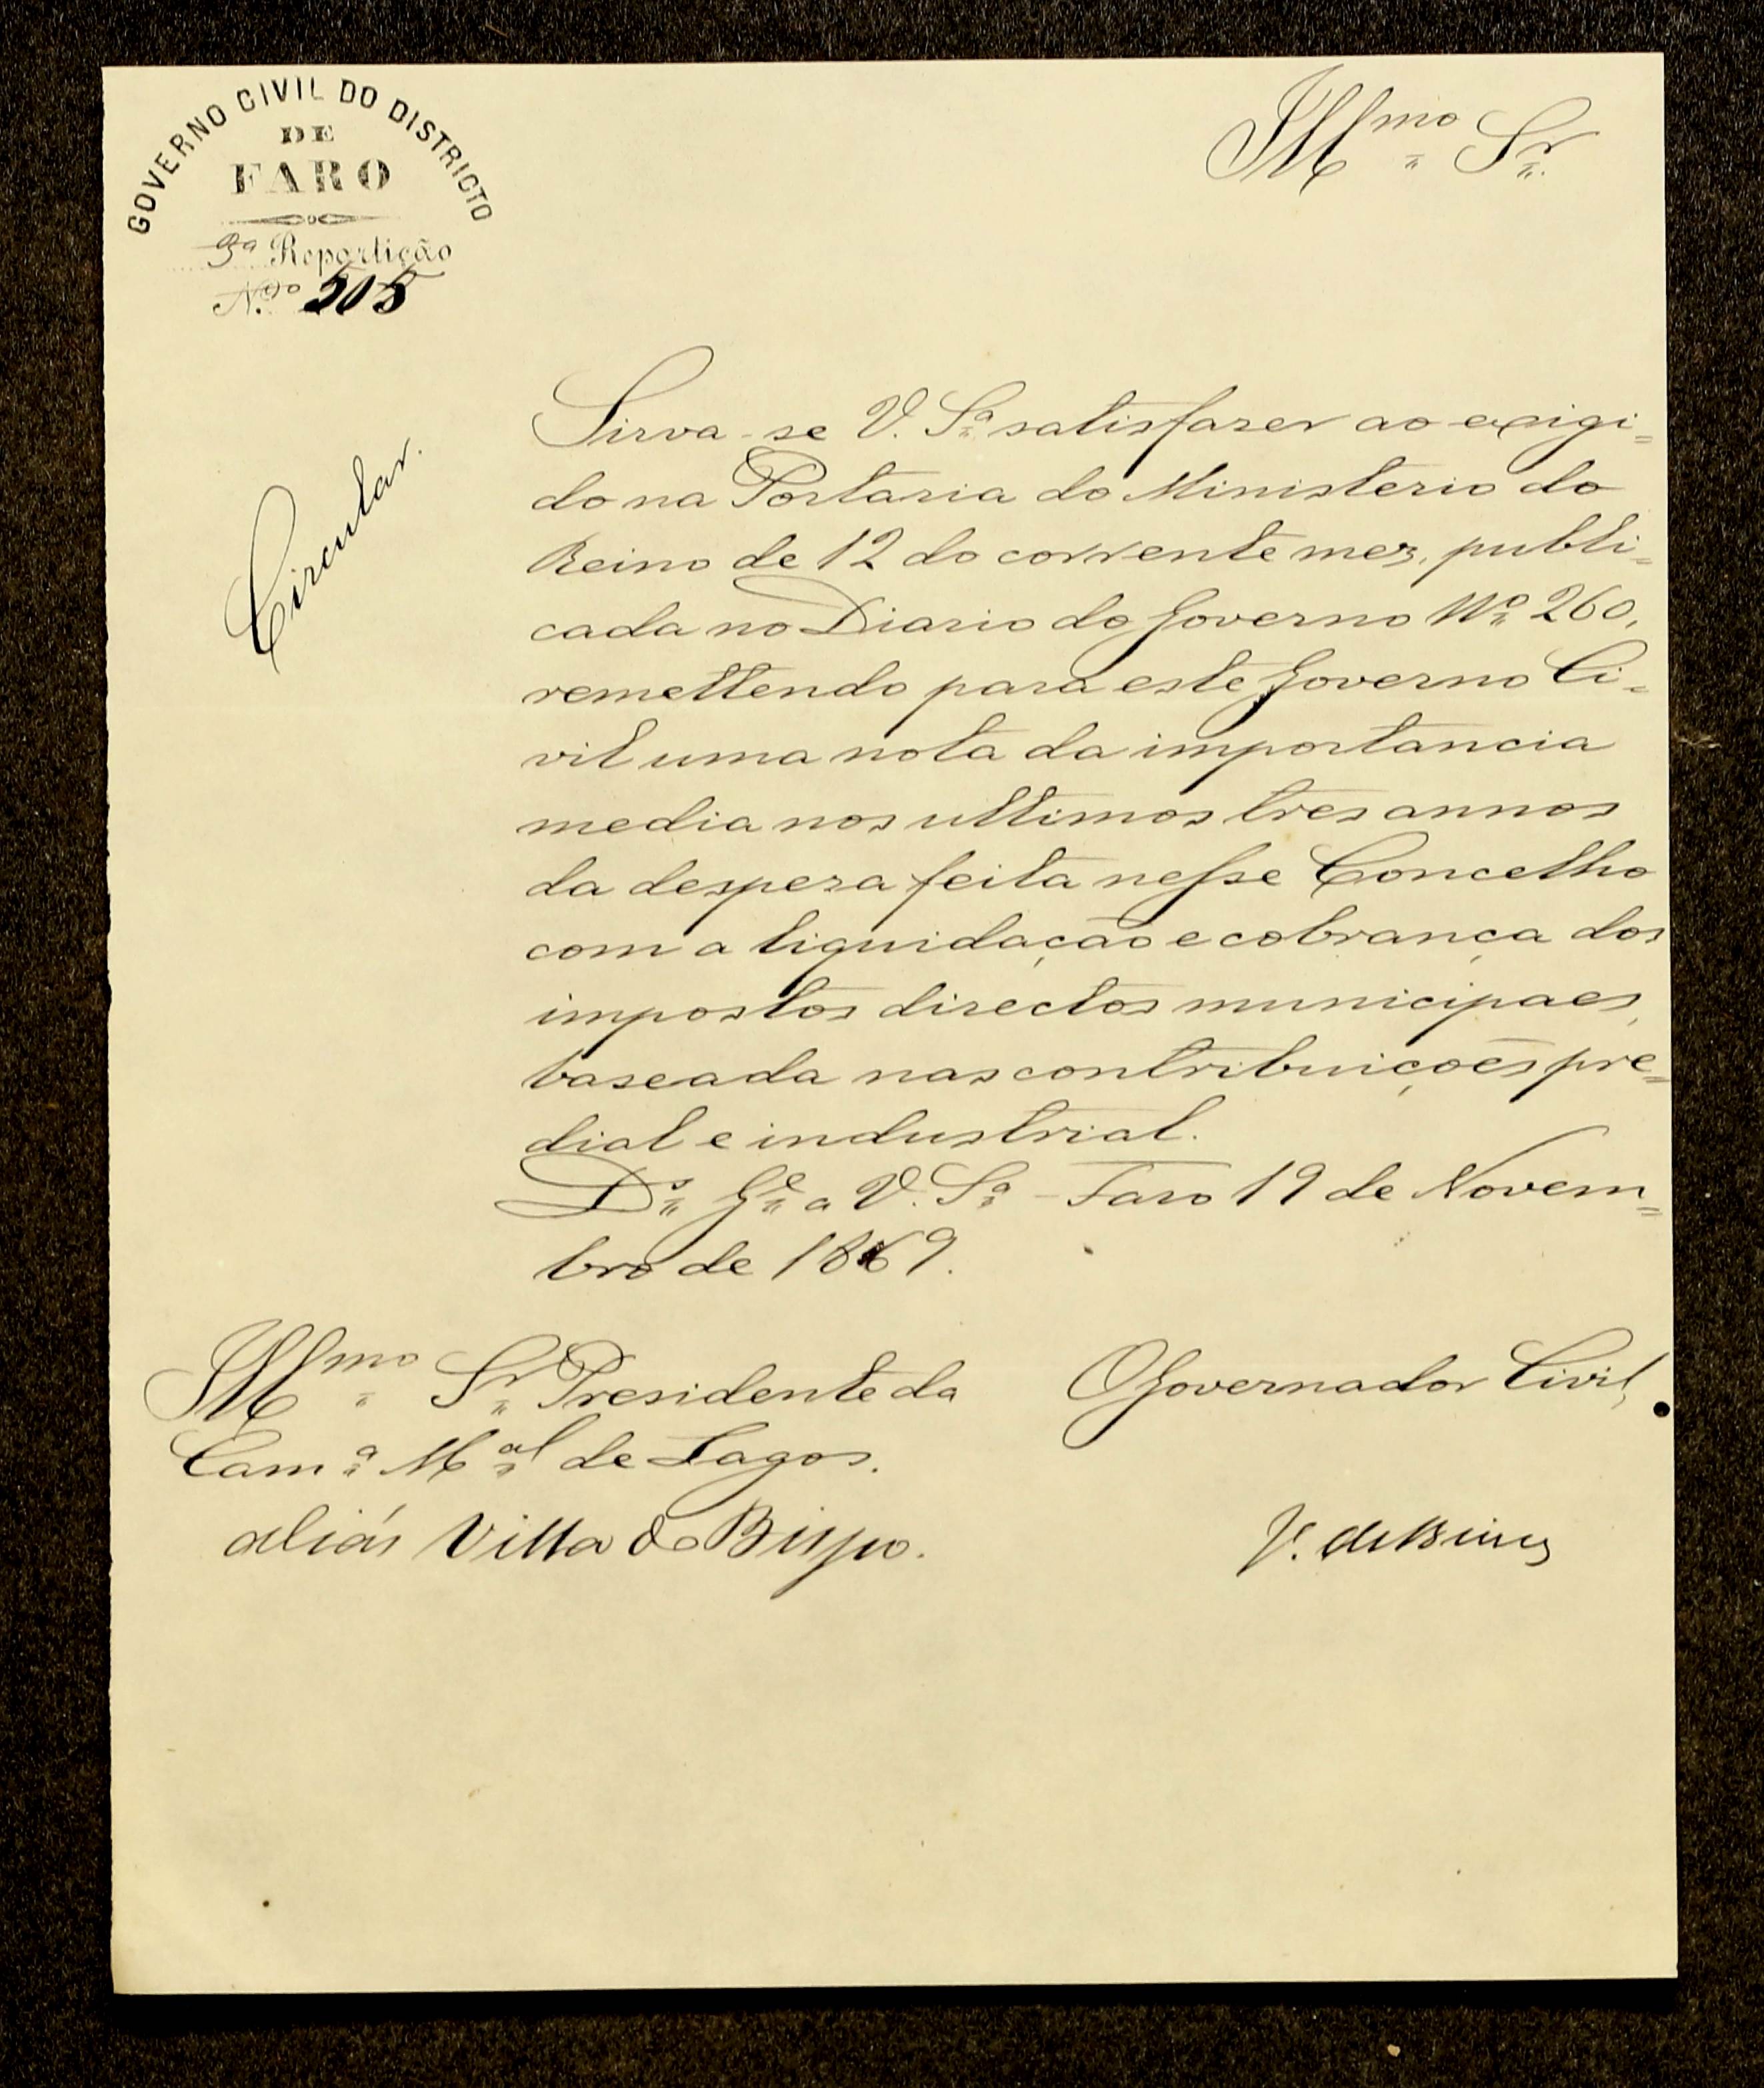 GOVERNO CIVIL DO DISTRICTO
DE
FARO
3ª Repartição
N.º 505
Illmo Sr.
Circular.
Sirva-se V. Sª satisfazer ao exigi=
do na Portaria do Ministerio do
Reino de 12 do corrente mez, publi=
cada no Diario do Governo Nº 260,
remettendo para este Governo Ci=
vil uma nota da importancia
media nos ultimos tres annos
da despeza feita nesse Concelho
com a liquidação e cobrança dos
impostos directos municipaes,
baseada nas contribuições pre=
dial e industrial.
Ds. Gde a V. Sª - Faro 19 de Novem=
bro de 1869.
Illmo Sr. Presidente da
Camª Mal de Lagos.
aliás Villa do Bispo.
O Governador Civil,